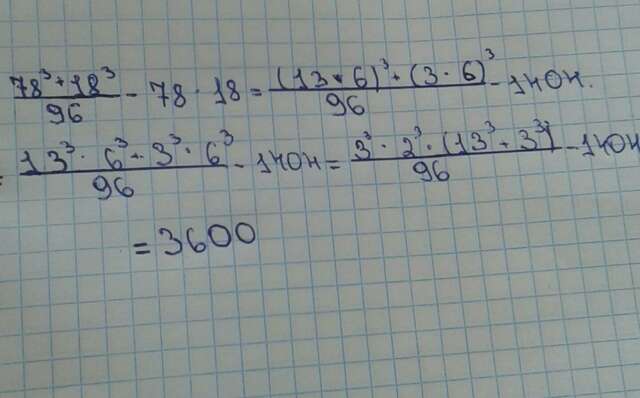 (78³+18³)/96 - 78·18 = ((13·6)³+(3·6)³)/96 - 1404.
= (13³·6³+3³·6³)/96 - 1404 = (3³·2³·(13³+3³))/96 - 1404
= 3600